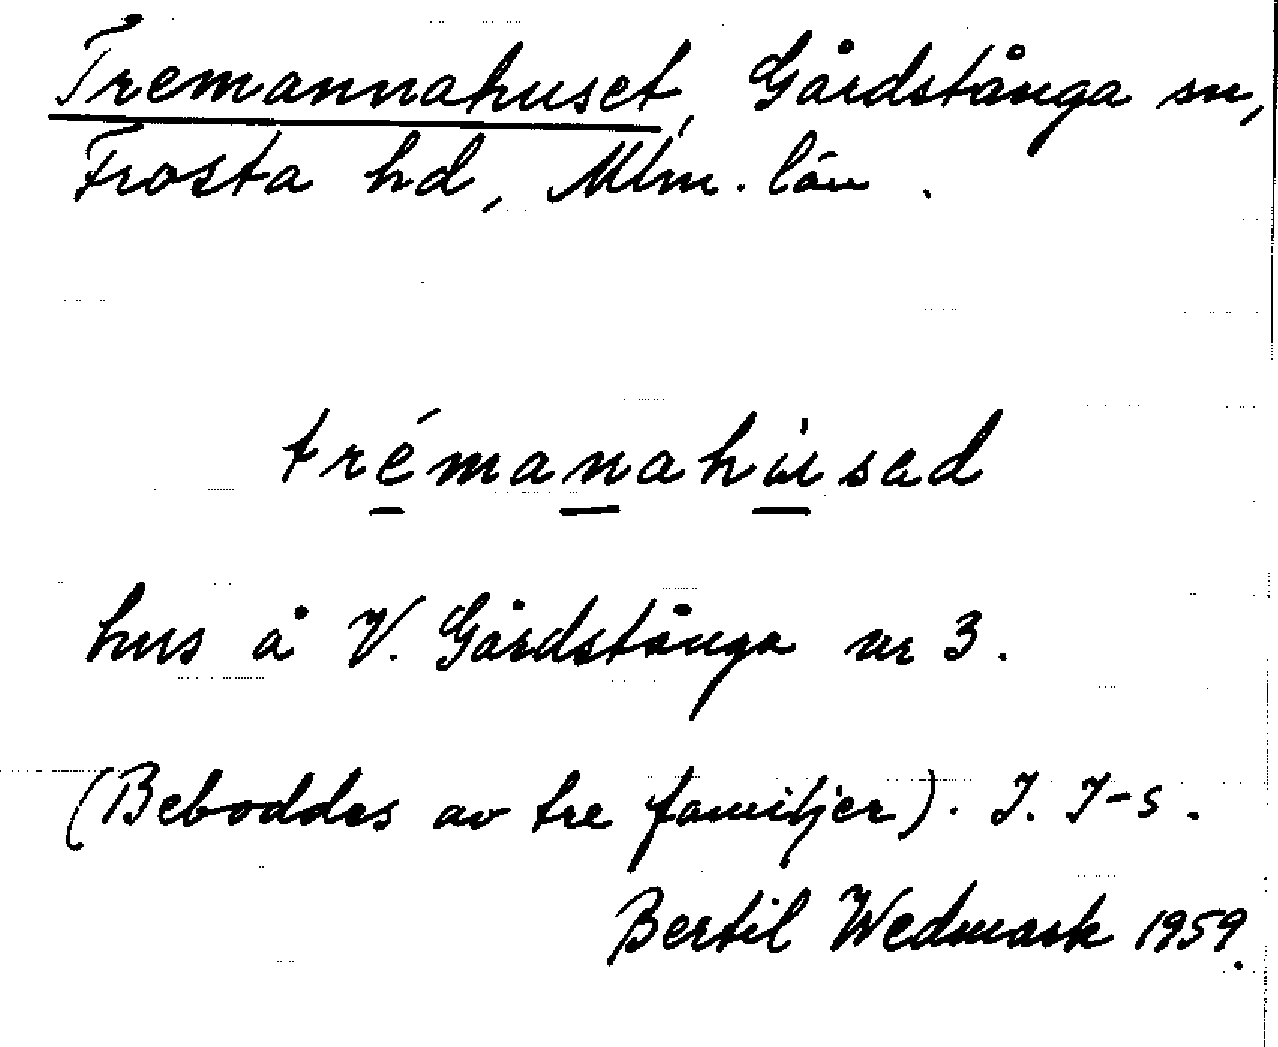 Tremannahuset, Gårdstånga sn,
Frosta hd, Mlm. län.
trémanahùsad
hus å V. Gårdstånga nr 3.
(Beboddes av tre familjer). J. J-s.
Bertil Wedmark 1959.